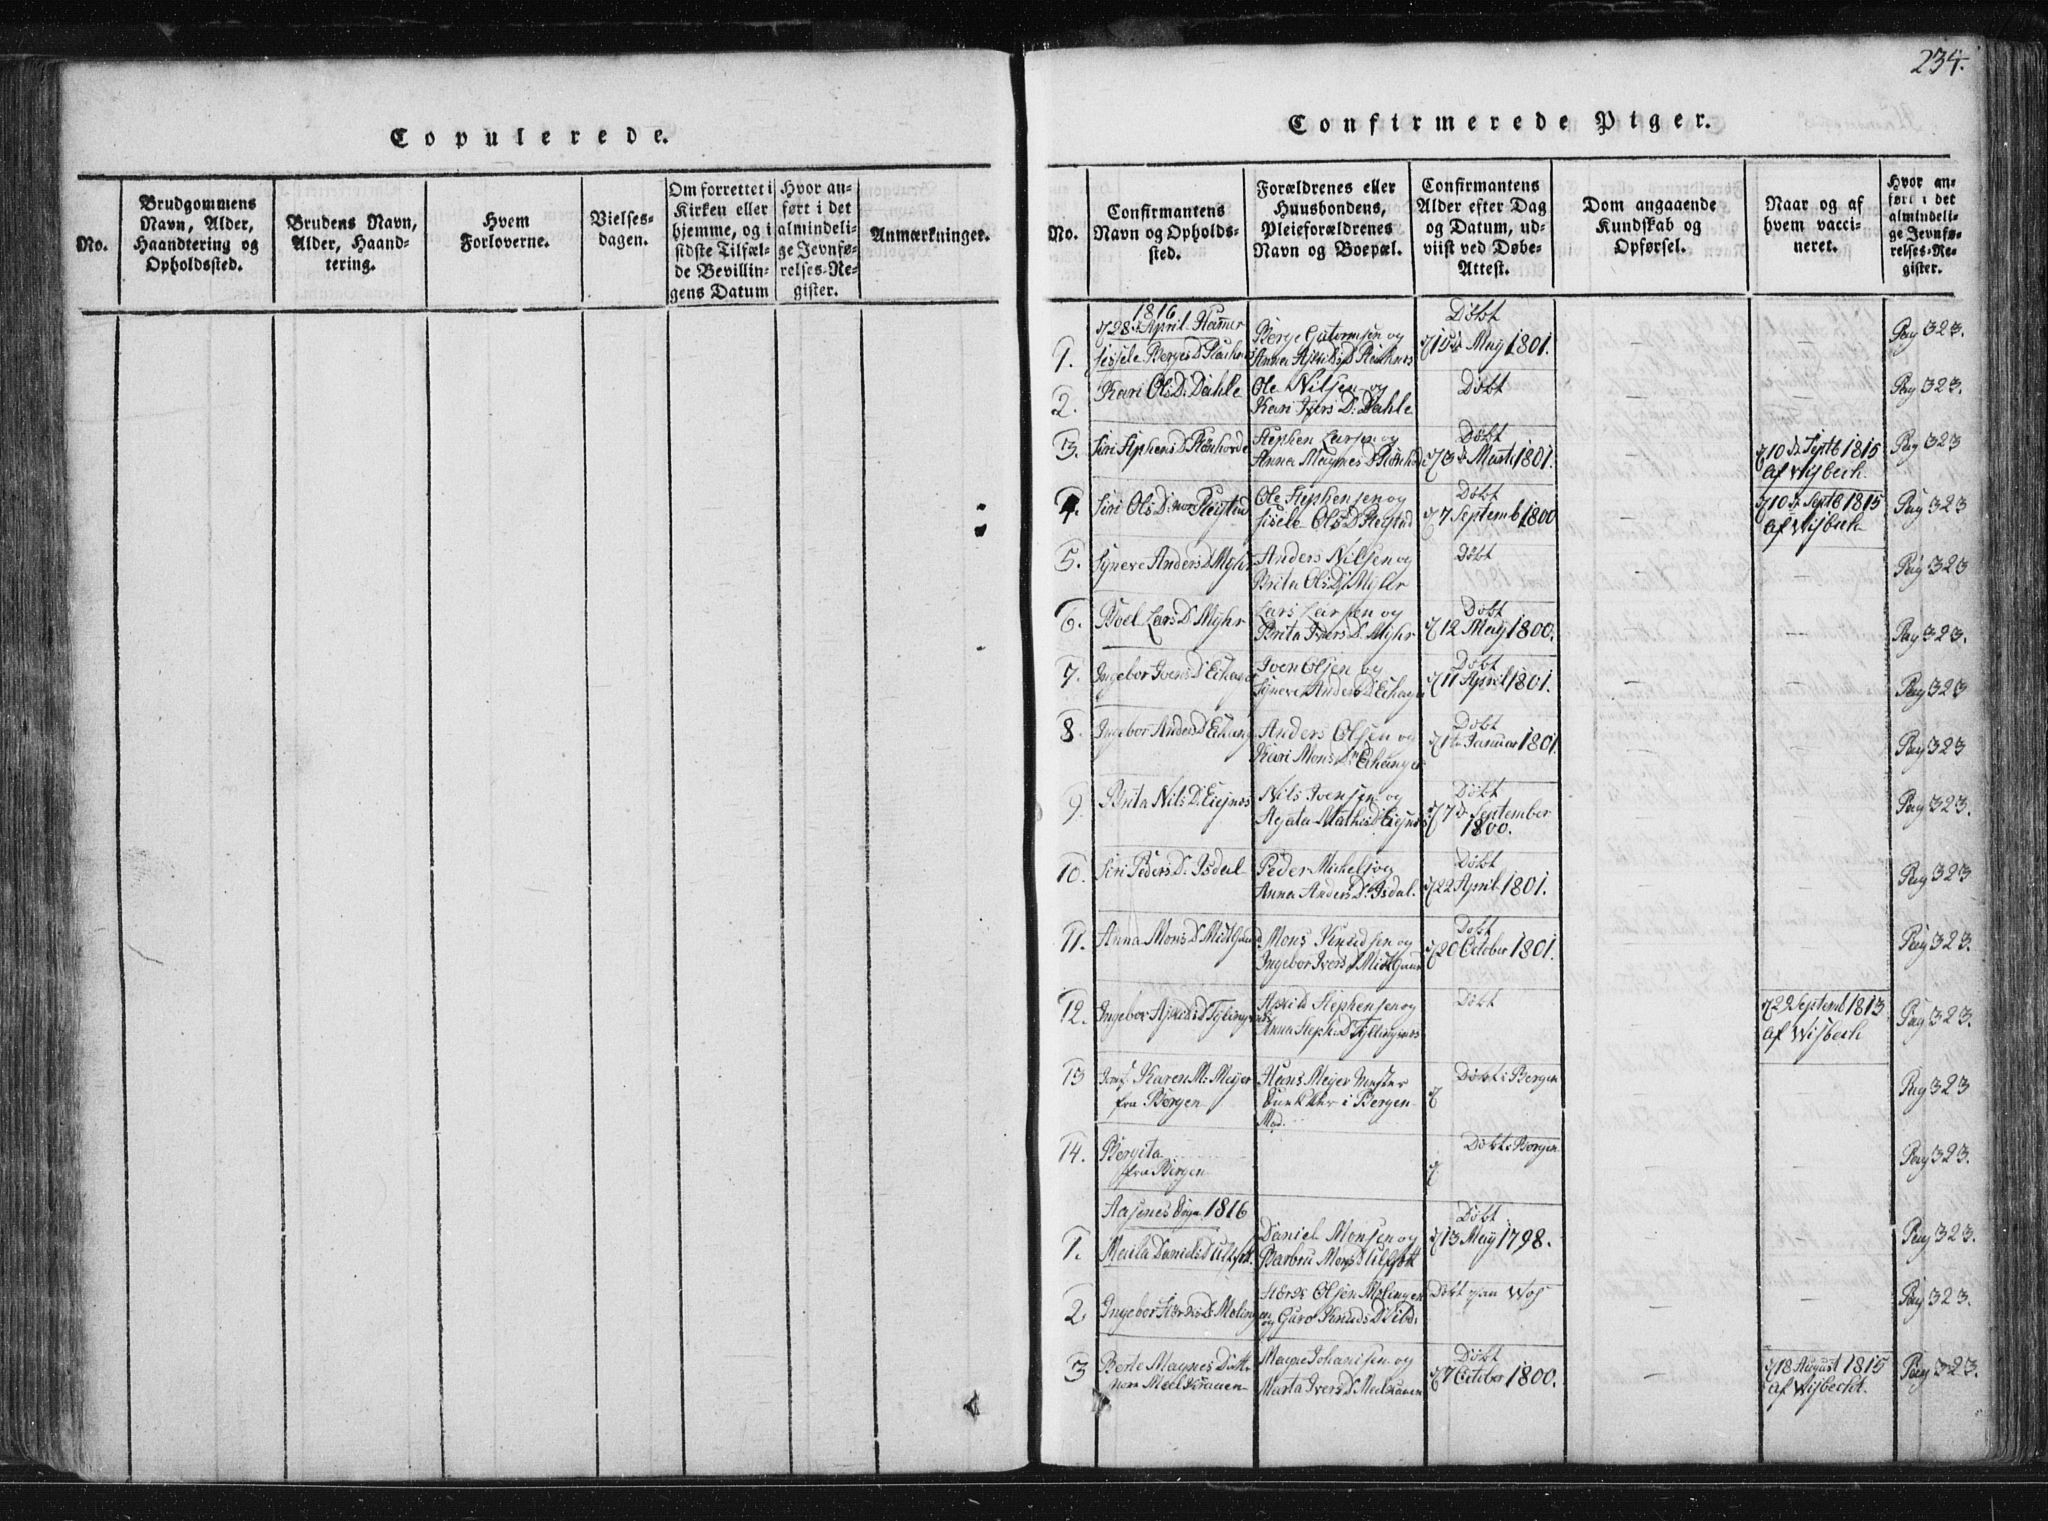 234.
Copulerede.
No.
Brudgommens
Navn, Alder,
Haandtering og
Opholdssted.
Brudens Navn,
Alder, Haand-
tering.
Hvem
Forloverne.
Vielses-
dagen.
Om forrettet i
Kirken eller
hjemme, og i
sidste Tilfæl-
de Bevillin-
gens Datum
Hvor an-
ført i det
almindeli-
ge Jevnfø-
relses-Re-
gister.
Anmærkninger.
Confirmerede Piger.
No.
Confirmantens
Navn og Opholds-
sted.
Forældrenes eller
Huusbondens,
Pleieforældrenes
Navn og Boepæl.
Confirmantens
Alder efter Dag
og Datum, ud-
viist ved Døbe-
Attest.
Dom angaaende
Kundskab og
Opførsel.
Naar og af
hvem vacci-
neret.
Hvor an-
ført i det
almindeli-
ge Jevnfø-
relses-Re-
gister.
1816
28 April Hammer
1.
Berge Gutormsen og
Anna
Døbt
May 1801.
Pag 323.
2.
Kari Ols D. Dahle
Ole Nilsen og
Kari Ivers D. Dahle
Døbt
Pag 323.
3.
Siri Stphens D
Stephen Larsen og
Anna Magnes D
Døbt
3 Marti 1801.
10 Septb 1815
af Wisbech.
Pag 323
4.
Siri Ols D
Ole Stephensen og
Sisele Ols D
Døbt
7 Septemb 1800
10 Septb 1815
af Wisbech
Pag 323
5.
Syneve Anders D Myhr
Anders Nilsen og
Brita Ols D. Myhr
Døbt
Pag 323
6.
Boel Lars D Myhr
Lars Larsen og
Brita Ivers D. Myhr
Døbt
12 May 1800.
Pag 323.
7.
Ingebor Ivers D
Iver Olsen og
Synneve Anders D
Døbt
11 April 1801.
Pag 323
8.
Ingebor Anders D
Anders Olsen og
Kari Mons D. Eihanger
Døbt
Januar 1801.
Pag 323
9.
Brita Nils D. Eisnes
Nils Iversen og
Agata Mathis D Eisnes
Døbt
7 September
1800.
Pag 323.
10.
Siri Peders D. Isdal
Peder Michels og
Anna Anders D. Isdal.
Døbt
22 April 1801.
Pag 323
11.
Anna Mons D Mistgaard
Mons Knudsen og
Ingebor Ivers D
Døbt
20 October 1801.
Pag 323.
12.
Ingebor
Stephensen og
Anna Steph. D
Døbt
22 Septemb 1813
af Wisbech
Pag 323.
13
Karen M. Meijer
fra Bergen
Hans Meijer
i Bergen
Døbt i Bergen
Pag 323
14.
Bergita
fra Bergen
Døbt i Bergen
Pag 323.
Sogn 1816
1.
Daniels D
Daniel Monsen og
Barbru Mons D
Døbt
13 May 1798.
Pag 323.
2.
Ingebor
Olsen Molingen
og Guro Knuds D
Døbt
Pag 323.
3
Berte Magnes Datt.
Magne Johanisen og
Marta Ivers D
Døbt
7 October 1800.
18 August 1815
af Wisbech.
Pag 323.